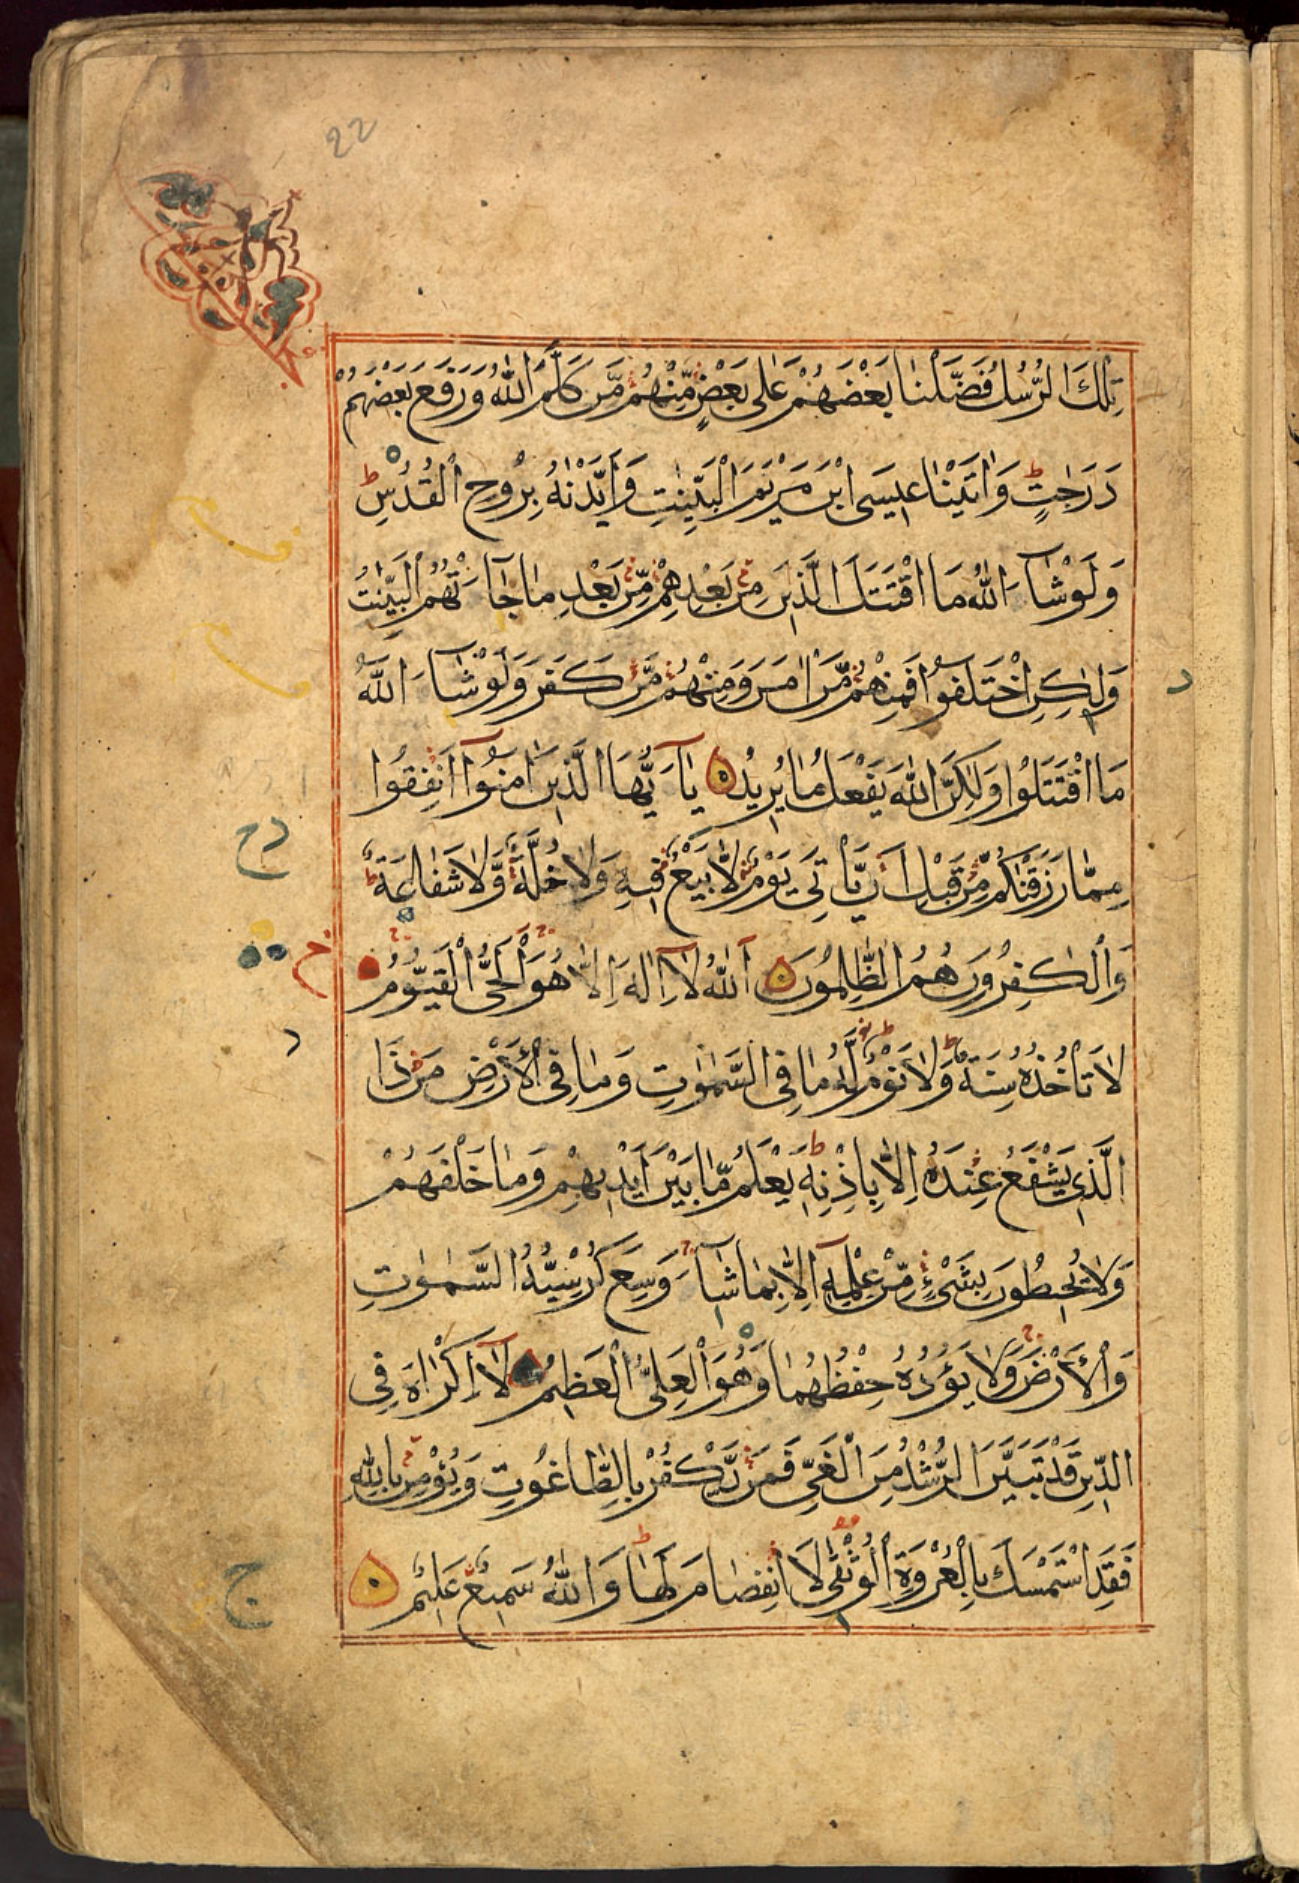 22
تِلْكَ الرُّسُلُ فَضَّلْنَا بَعْضَهُمْ عَلٰى بَعْضٍ مِّنْهُمْ مَّنْ كَلَّمَ اللّٰهُ وَرَفَعَ بَعْضَهُمْ
دَرَجٰتٍ ط وَاٰتَيْنَا عِيْسَى ابْنَ مَرْيَمَ الْبَيِّنٰتِ وَاَيَّدْنٰهُ بِرُوْحِ الْقُدُسِ ط
وَلَوْ شَآءَ اللّٰهُ مَا اقْتَتَلَ الَّذِيْنَ مِنْ بَعْدِهِمْ مِّنْ بَعْدِ مَا جَآءَتْهُمُ الْبَيِّنٰتُ
وَلٰكِنِ اخْتَلَفُوْا فَمِنْهُمْ مَّنْ اٰمَنَ وَمِنْهُمْ مَّنْ كَفَرَ وَلَوْ شَآءَ اللّٰهُ
مَا اقْتَتَلُوْا وَلٰكِنَّ اللّٰهَ يَفْعَلُ مَا يُرِيْدُ يٰٓاَيُّهَا الَّذِيْنَ اٰمَنُوْٓا اَنْفِقُوْا
مِمَّا رَزَقْنٰكُمْ مِّنْ قَبْلِ اَنْ يَّاْتِيَ يَوْمٌ لَّا بَيْعٌ فِيْهِ وَلَا خُلَّةٌ وَّلَا شَفَاعَةٌ ط
وَالْكٰفِرُوْنَ هُمُ الظّٰلِمُوْنَ اَللّٰهُ لَآ اِلٰهَ اِلَّا هُوَ الْحَيُّ الْقَيُّوْمُ
لَا تَاْخُذُهٗ سِنَةٌ وَّلَا نَوْمٌ ط لَّهٗ مَا فِى السَّمٰوٰتِ وَمَا فِى الْاَرْضِ مَنْ ذَا
الَّذِيْ يَشْفَعُ عِنْدَهٗٓ اِلَّا بِاِذْنِهٖ ط يَعْلَمُ مَا بَيْنَ اَيْدِيْهِمْ وَمَا خَلْفَهُمْ
وَلَا يُحِيْطُوْنَ بِشَيْءٍ مِّنْ عِلْمِهٖٓ اِلَّا بِمَا شَآءَ وَسِعَ كُرْسِيُّهُ السَّمٰوٰتِ
وَالْاَرْضَ وَلَا يَؤُدُهٗ حِفْظُهُمَا وَهُوَ الْعَلِيُّ الْعَظِيْمُ لَآ اِكْرَاهَ فِى
الدِّيْنِ قَدْ تَبَيَّنَ الرُّشْدُ مِنَ الْغَيِّ فَمَنْ يَّكْفُرْ بِالطَّاغُوْتِ وَيُؤْمِنْ بِاللّٰهِ
فَقَدِ اسْتَمْسَكَ بِالْعُرْوَةِ الْوُثْقٰى لَا انْفِصَامَ لَهَا ط وَاللّٰهُ سَمِيْعٌ عَلِيْمٌ